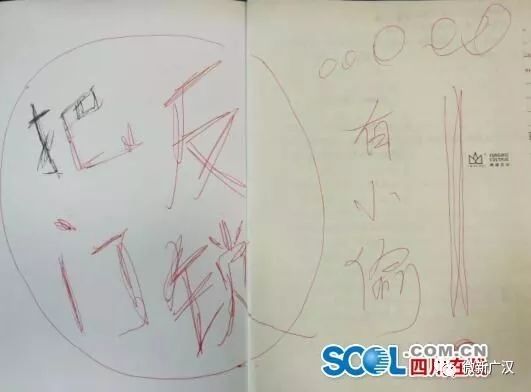 把门
反锁
有小偷
SCOL.COM.CN
四川在线
微新广汉